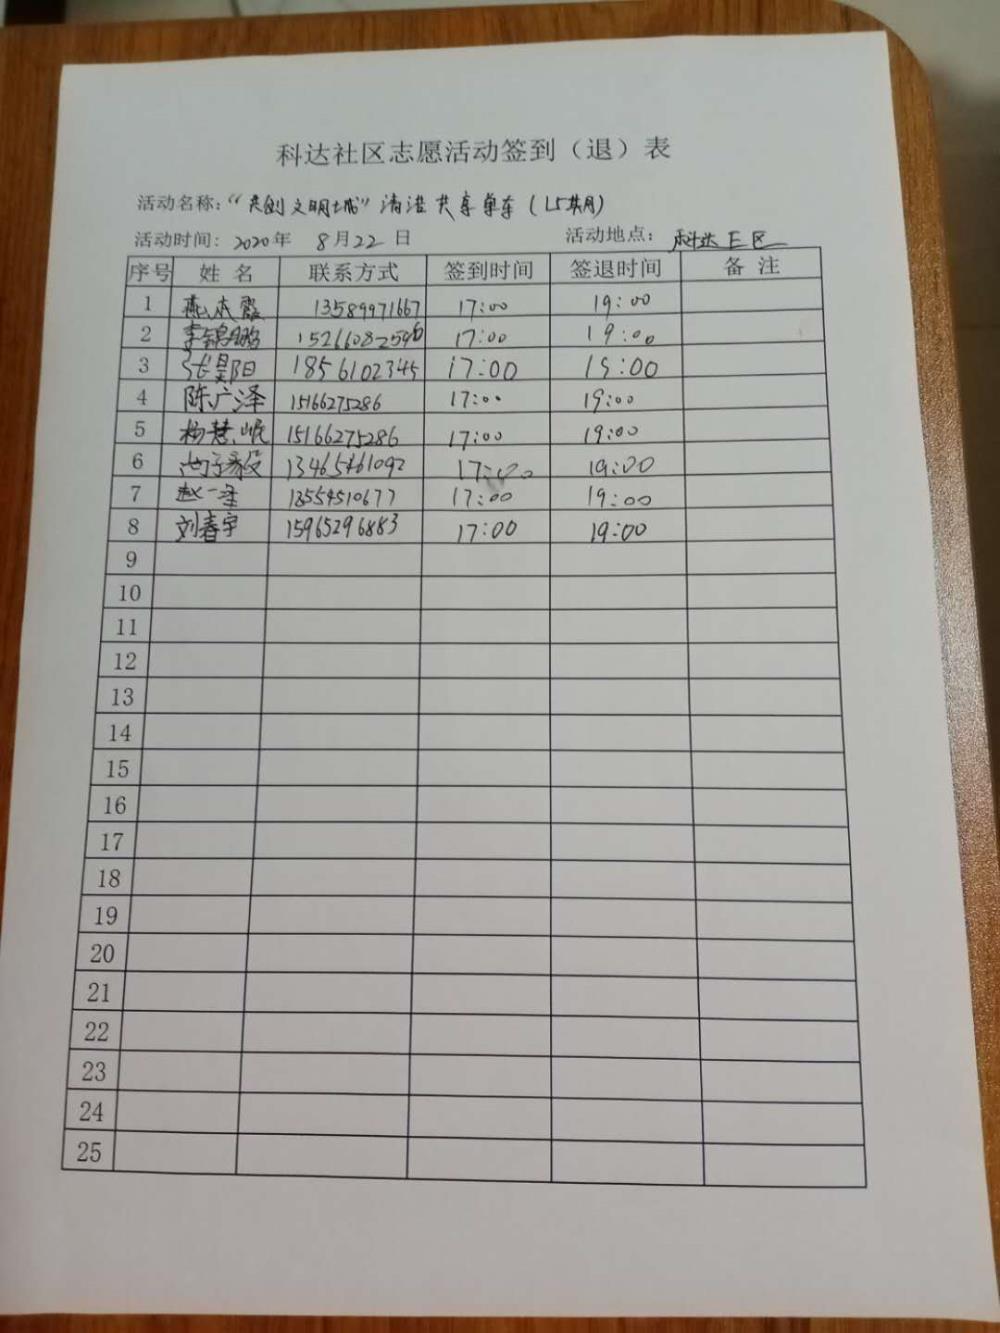 科达社区志愿活动签到（退）表
活动名称：“共创文明城”清洁共享单车（15期）
活动时间：2020年 8月22日 活动地点：科达E区
序号 姓名 联系方式 签到时间 签退时间 备注
1 13589971667 17:00 19:00
2 李锦鹏 17:00 19:00
3 张昊阳 1856102345 17:00 19:00
4 陈广泽 15166275286 17:00 19:00
5 杨慧岷 15166275286 17:00 19:00
6 13465461092 17:00 19:00
7 赵一泽 18554510677 17:00 19:00
8 刘春宇 15965296883 17:00 19:00
9
10
11
12
13
14
15
16
17
18
19
20
21
22
23
24
25